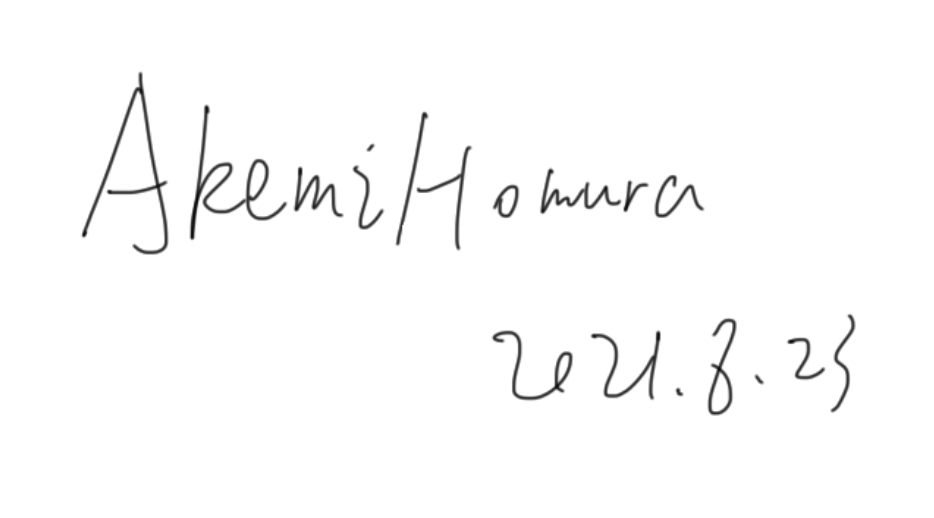 Akemi Homura
2021.8.23